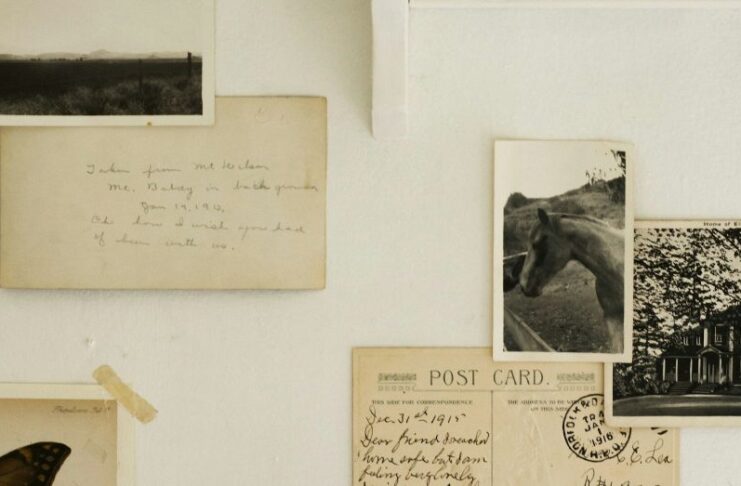 Taken from Mt Wilson
Mt. Baldy in back ground
Jan 19, 191
Oh how I wish you had
of been with us.
Home of
POST CARD.
THIS SIDE FOR CORRESPONDENCE
THE ADDRESS
ON THIS SIDE
Dec. 31st 1915
Dear friend I reached
home safe but I am
feeling very lonely
NORFOLK
TR
JAN
1
1916
R.P.O.
E. Lea